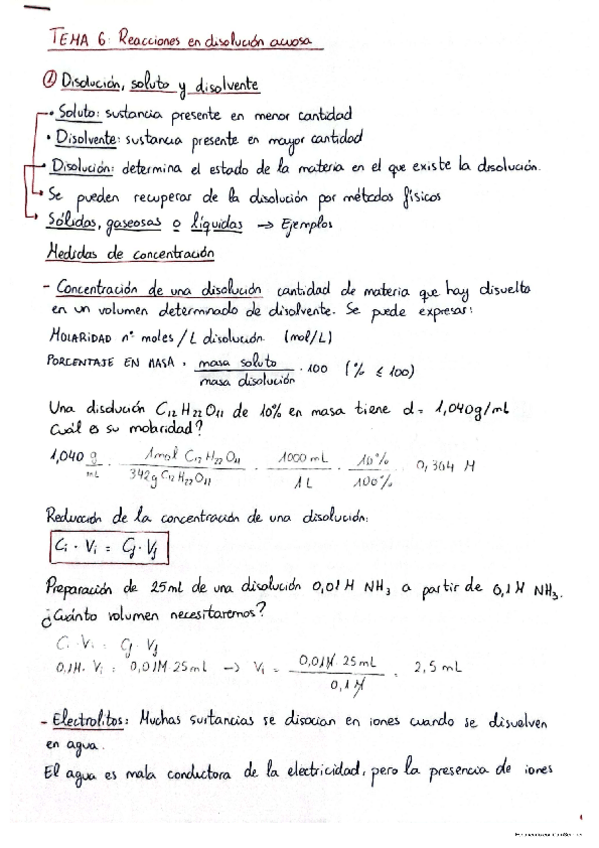 TEMA 6: Reacciones en disolución acuosa
① Disolución, soluto y disolvente
• Soluto: sustancia presente en menor cantidad
• Disolvente: sustancia presente en mayor cantidad
• Disolución: determina el estado de la materia en el que existe la disolución.
Se pueden recuperar de la disolución por métodos físicos
Sólidas, gaseosas o líquidas → Ejemplos
Medidas de concentración
- Concentración de una disolución cantidad de materia que hay disuelta
en un volumen determinado de disolvente. Se puede expresar:
MOLARIDAD nº moles / L disolución (mol/L)
PORCENTAJE EN MASA = masa soluto / masa disolución · 100 (% ≤ 100)
Una disolución C12 H22 O11 de 10% en masa tiene d = 1,040 g/mL
Cuál es su molaridad?
1,040 g/mL · 1 mol C12 H22 O11 / 342 g C12 H22 O11 · 1000 mL / 1 L · 10% / 100% = 0,304 M
Reducción de la concentración de una disolución:
Ci · Vi = Cf · Vf
Preparación de 25 ml de una disolución 0,01 M NH3 a partir de 0,1 M NH3.
¿Cuánto volumen necesitaremos?
Ci · Vi = Cf · Vf
0,1M · Vi = 0,01M · 25 mL → Vi = 0,01M · 25 mL / 0,1 M = 2,5 mL
- Electrolitos: Muchas sustancias se disocian en iones cuando se disuelven
en agua.
El agua es mala conductora de la electricidad, pero la presencia de iones